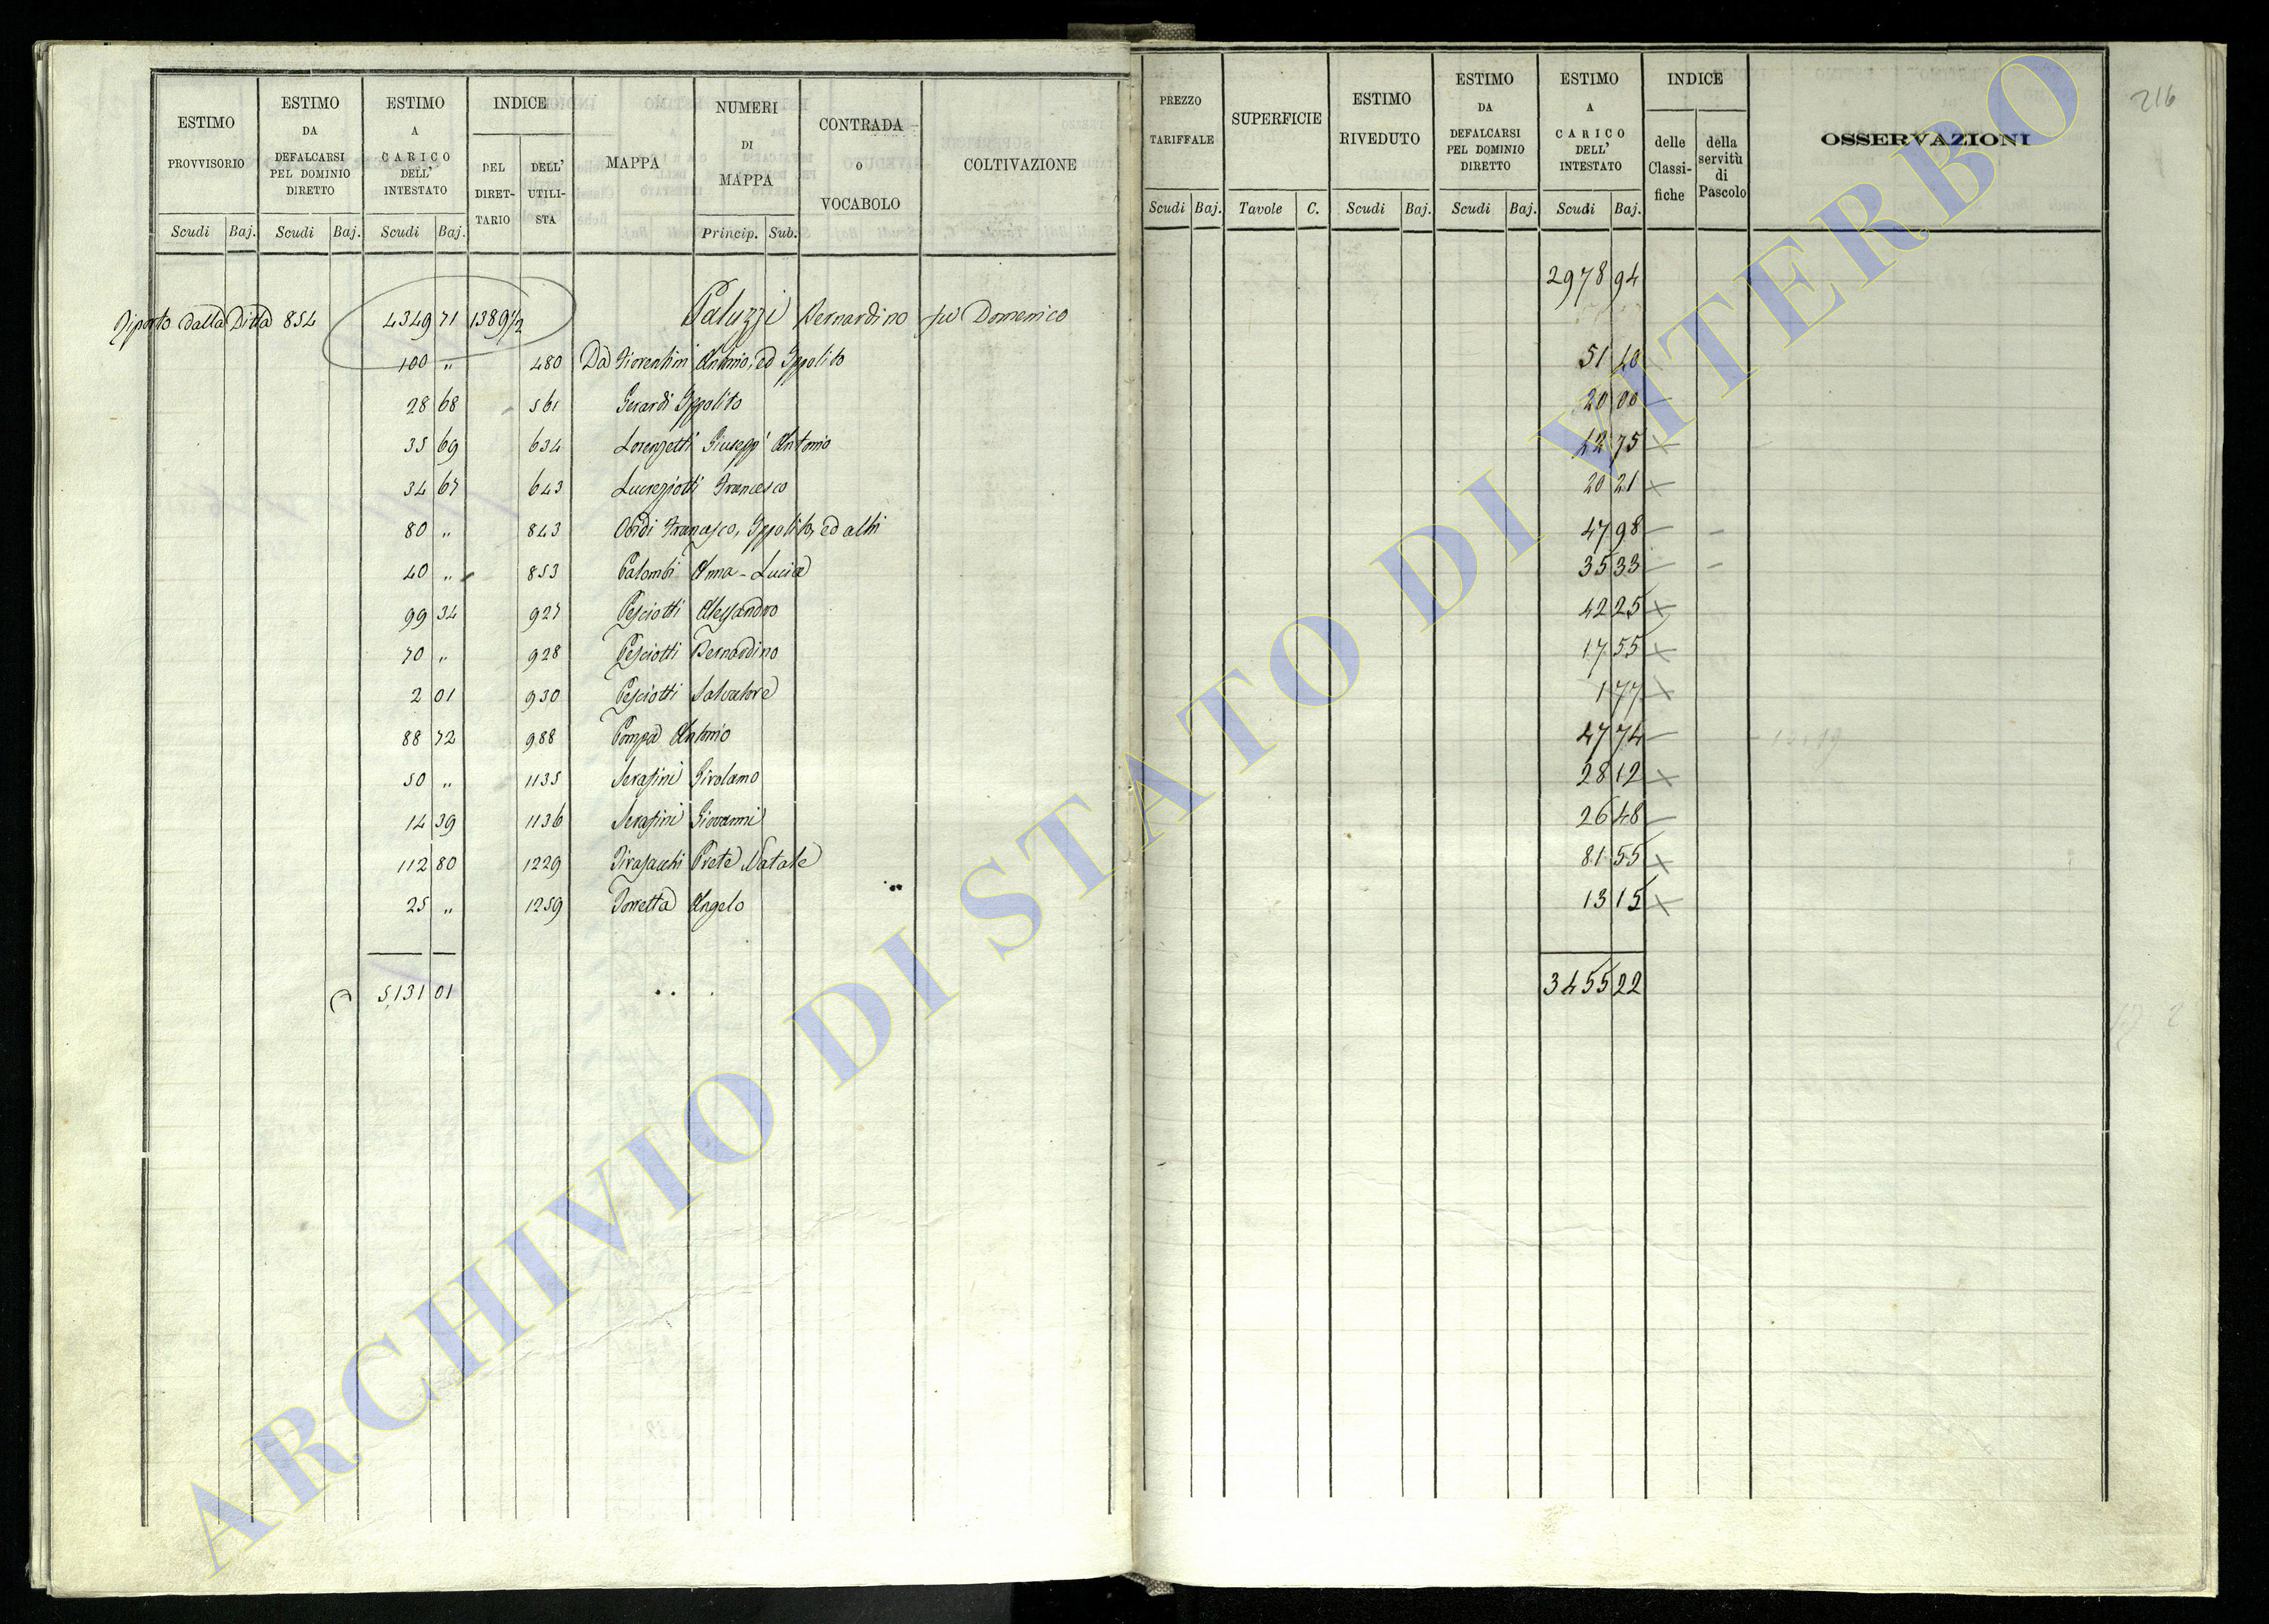 216
ESTIMO PROVVISORIO Scudi Baj.
ESTIMO DA DEFALCARSI PEL DOMINIO DIRETTO Scudi Baj.
ESTIMO A CARICO DELL' INTESTATO Scudi Baj.
INDICE DEL DIRETTARIO DELL' UTILISTA
MAPPA
NUMERI DI MAPPA Princip. Sub.
CONTRADA o VOCABOLO
COLTIVAZIONE
PREZZO TARIFFALE Scudi Baj.
SUPERFICIE Tavole C.
ESTIMO RIVEDUTO Scudi Baj.
ESTIMO DA DEFALCARSI PEL DOMINIO DIRETTO Scudi Baj.
ESTIMO A CARICO DELL' INTESTATO Scudi Baj.
INDICE delle Classifiche della servitù di Pascolo
OSSERVAZIONI
Riporto dalla Ditta 854 4349 71 1389 1/2 Paluzzi Bernardino fu Domenico 2978 94
100 „ 480 Da Fiorentini Antonio, ed Ippolito 51 40
28 68 561 Gerardi Ippolito 20 00 —
35 69 634 Lorenzetti Giusepp' Antonio 42 75 ×
34 67 643 Lucreziotti Francesco 20 21 ×
80 „ 843 Ovidi Francesco, Ippolito, ed altri 47 98 — –
40 „ 853 Palombi Anna-Lucia 35 33 — –
99 34 927 Pesciotti Alessandro 42 25 ×
70 „ 928 Pesciotti Bernardino 17 55 ×
2 01 930 Pesciotti Salvatore 1 77 ×
88 72 988 Pompa Antonio 47 74 —
50 „ 1135 Serafini Girolamo 28 12 ×
14 39 1136 Serafini Giovanni 26 48 —
112 80 1229 Tirasacchi Prete Natale 81 55 ×
25 „ 1259 Torretta Angelo 13 15 ×
5131 01 3455 22
ARCHIVIO DI STATO DI VITERBO